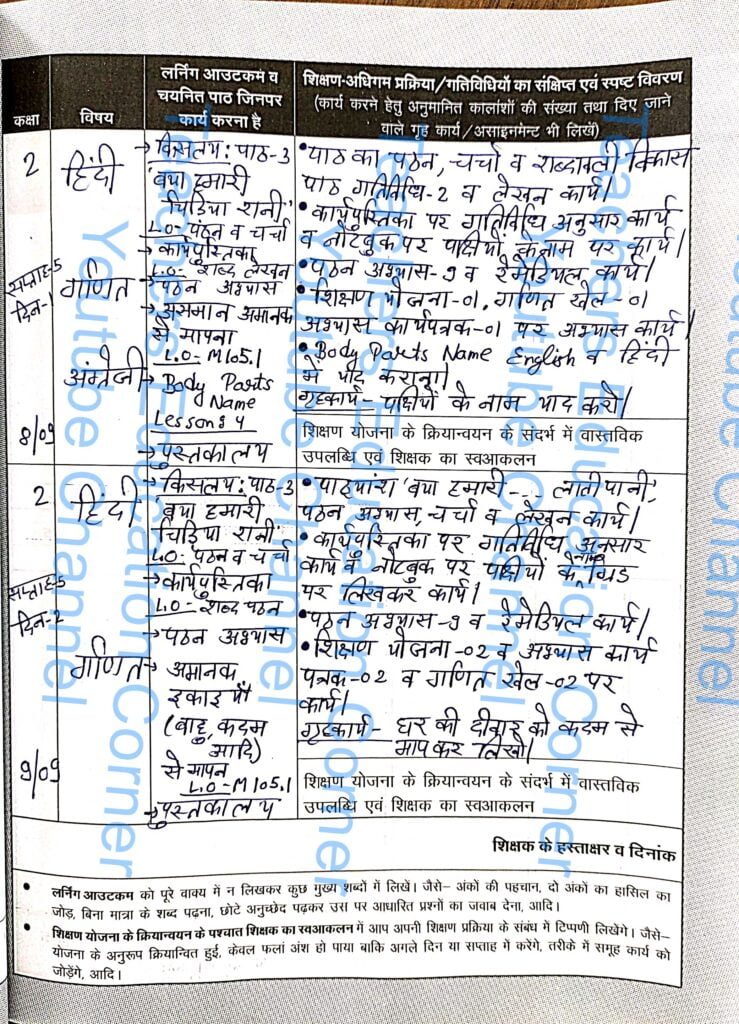 कक्षा
विषय
लर्निंग आउटकम व
चयनित पाठ जिनपर
कार्य करना है
शिक्षण-अधिगम प्रक्रिया/गतिविधियों का संक्षिप्त एवं स्पष्ट विवरण
(कार्य करने हेतु अनुमानित कालांशों की संख्या तथा दिए जाने
वाले गृह कार्य/असाइनमेन्ट भी लिखें)
2
हिंदी
सप्ताह-5
दिन-1
गणित
अंग्रेजी
8/09
→ किसलय: पाठ-3
'क्या हमारी
चिड़िया रानी'
L.O- पठन व चर्चा
→ कार्यपुस्तिका
L.O- शब्द लेखन
→ पठन अभ्यास
→ असमान अमानक
से मापना
L.O- M105.1
→ Body Parts
Name
Lesson 4
→ पुस्तकालय
• पाठ का पठन, चर्चा व शब्दावली विकास
पाठ गतिविधि-2 व लेखन कार्य।
• कार्यपुस्तिका पर गतिविधि अनुसार कार्य
व नोटबुक पर पक्षियों के नाम पर कार्य।
• पठन अभ्यास-9 व रेमेडियल कार्य।
• शिक्षण योजना-01, गणित खेल-01
अभ्यास कार्यपत्रक-01 पर अभ्यास कार्य।
• Body Parts Name English व हिंदी
में याद कराना।
गृहकार्य- पक्षियों के नाम याद करो।
शिक्षण योजना के क्रियान्वयन के संदर्भ में वास्तविक
उपलब्धि एवं शिक्षक का स्वआकलन
2
हिंदी
सप्ताह-5
दिन-2
गणित
9/09
→ किसलय: पाठ-3
'क्या हमारी
चिड़िया रानी'
L.O- पठन व चर्चा
→ कार्यपुस्तिका
L.O- शब्द पठन
→ पठन अभ्यास
→ अमानक
इकाइयों
(बाहु, कदम
आदि)
से मापन
L.O- M105.1
→ पुस्तकालय
• पाठ्यांश 'क्या हमारी --- लाती पानी',
पठन अभ्यास, चर्चा व लेखन कार्य।
• कार्यपुस्तिका पर गतिविधि अनुसार
कार्य व नोटबुक पर पक्षियों के नाम ग्रिड
पर लिखकर कार्य।
• पठन अभ्यास-9 व रेमेडियल कार्य।
• शिक्षण योजना-02 व अभ्यास कार्य
पत्रक-02 व गणित खेल-02 पर
कार्य।
गृहकार्य- घर की दीवार को कदम से
माप कर लिखो।
शिक्षण योजना के क्रियान्वयन के संदर्भ में वास्तविक
उपलब्धि एवं शिक्षक का स्वआकलन
शिक्षक के हस्ताक्षर व दिनांक
• लर्निंग आउटकम को पूरे वाक्य में न लिखकर कुछ मुख्य शब्दों में लिखें। जैसे– अंकों की पहचान, दो अंकों का हासिल का
जोड़, बिना मात्रा के शब्द पढ़ना, छोटे अनुच्छेद पढ़कर उस पर आधारित प्रश्नों का जवाब देना, आदि।
• शिक्षण योजना के क्रियान्वयन के पश्चात शिक्षक का स्वआकलन में आप अपनी शिक्षण प्रक्रिया के संबंध में टिप्पणी लिखेंगे। जैसे–
योजना के अनुरूप क्रियान्वित हुई, केवल फलां अंश हो पाया बाकि अगले दिन या सप्ताह में करेंगे, तरीके में समूह कार्य को
जोड़ेंगे, आदि।
Teachers Education Corner
Youtube Channel
Teachers Education Corner
Youtube Channel
Teachers Education Corner
Youtube Channel